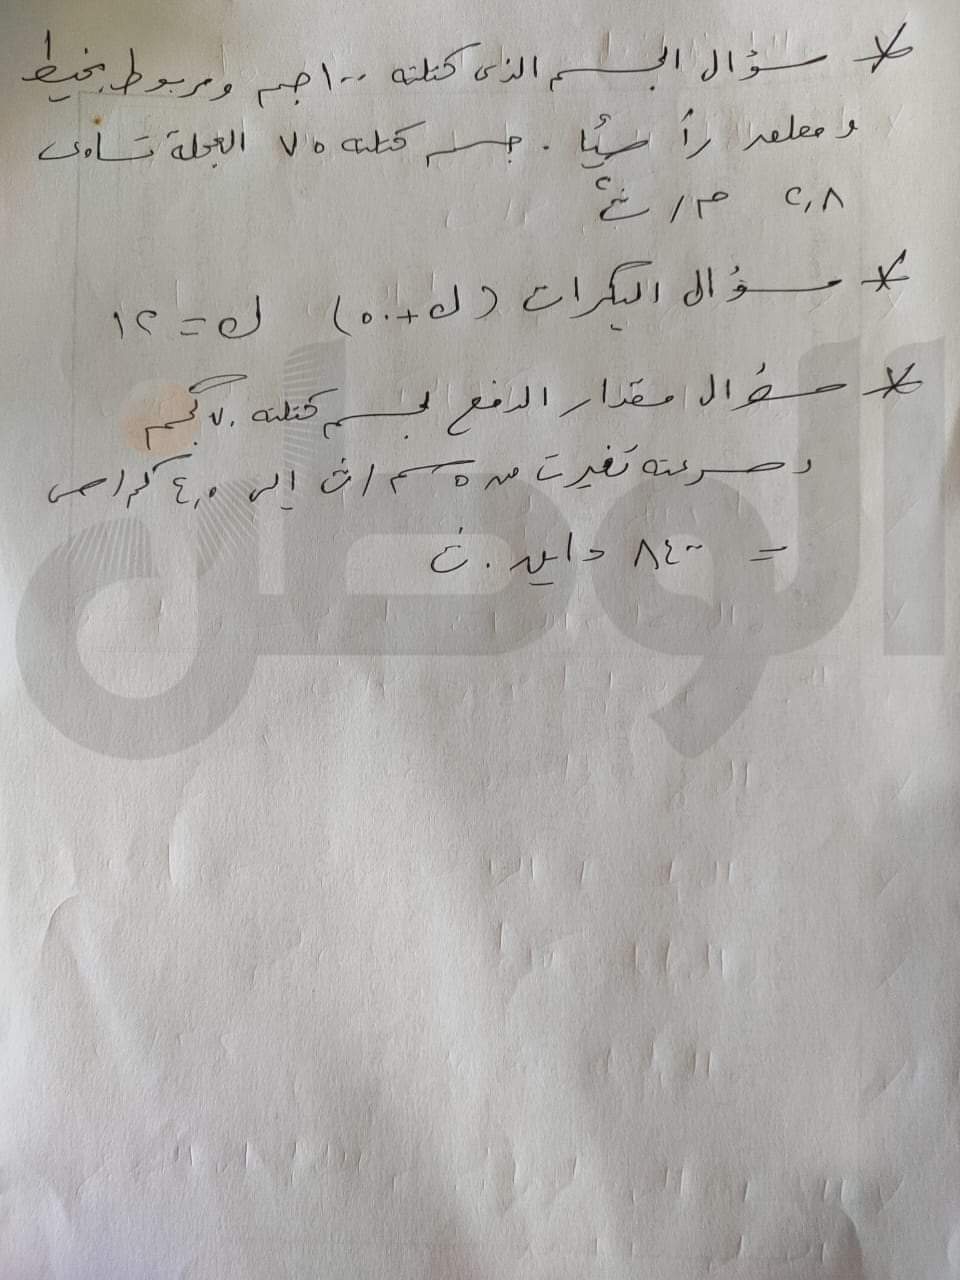 * سؤال الجسم الذى كتلته ١٠٠ جم ومربوط بخيط
ومعلق رأسيًا . جسم كتلته ٧٥ العجلة تساوى
٢,٨ م/ث٢
* سؤال البكرات (ك + ٥٠) ك = ١٢
* سؤال مقدار الدفع لجسم كتلته ٧٠ جم
وسرعته تغيرت من ٥ سم/ث إلى ٤,٥ كم/س
= ٨٤٠٠ داين . ث
الوطن